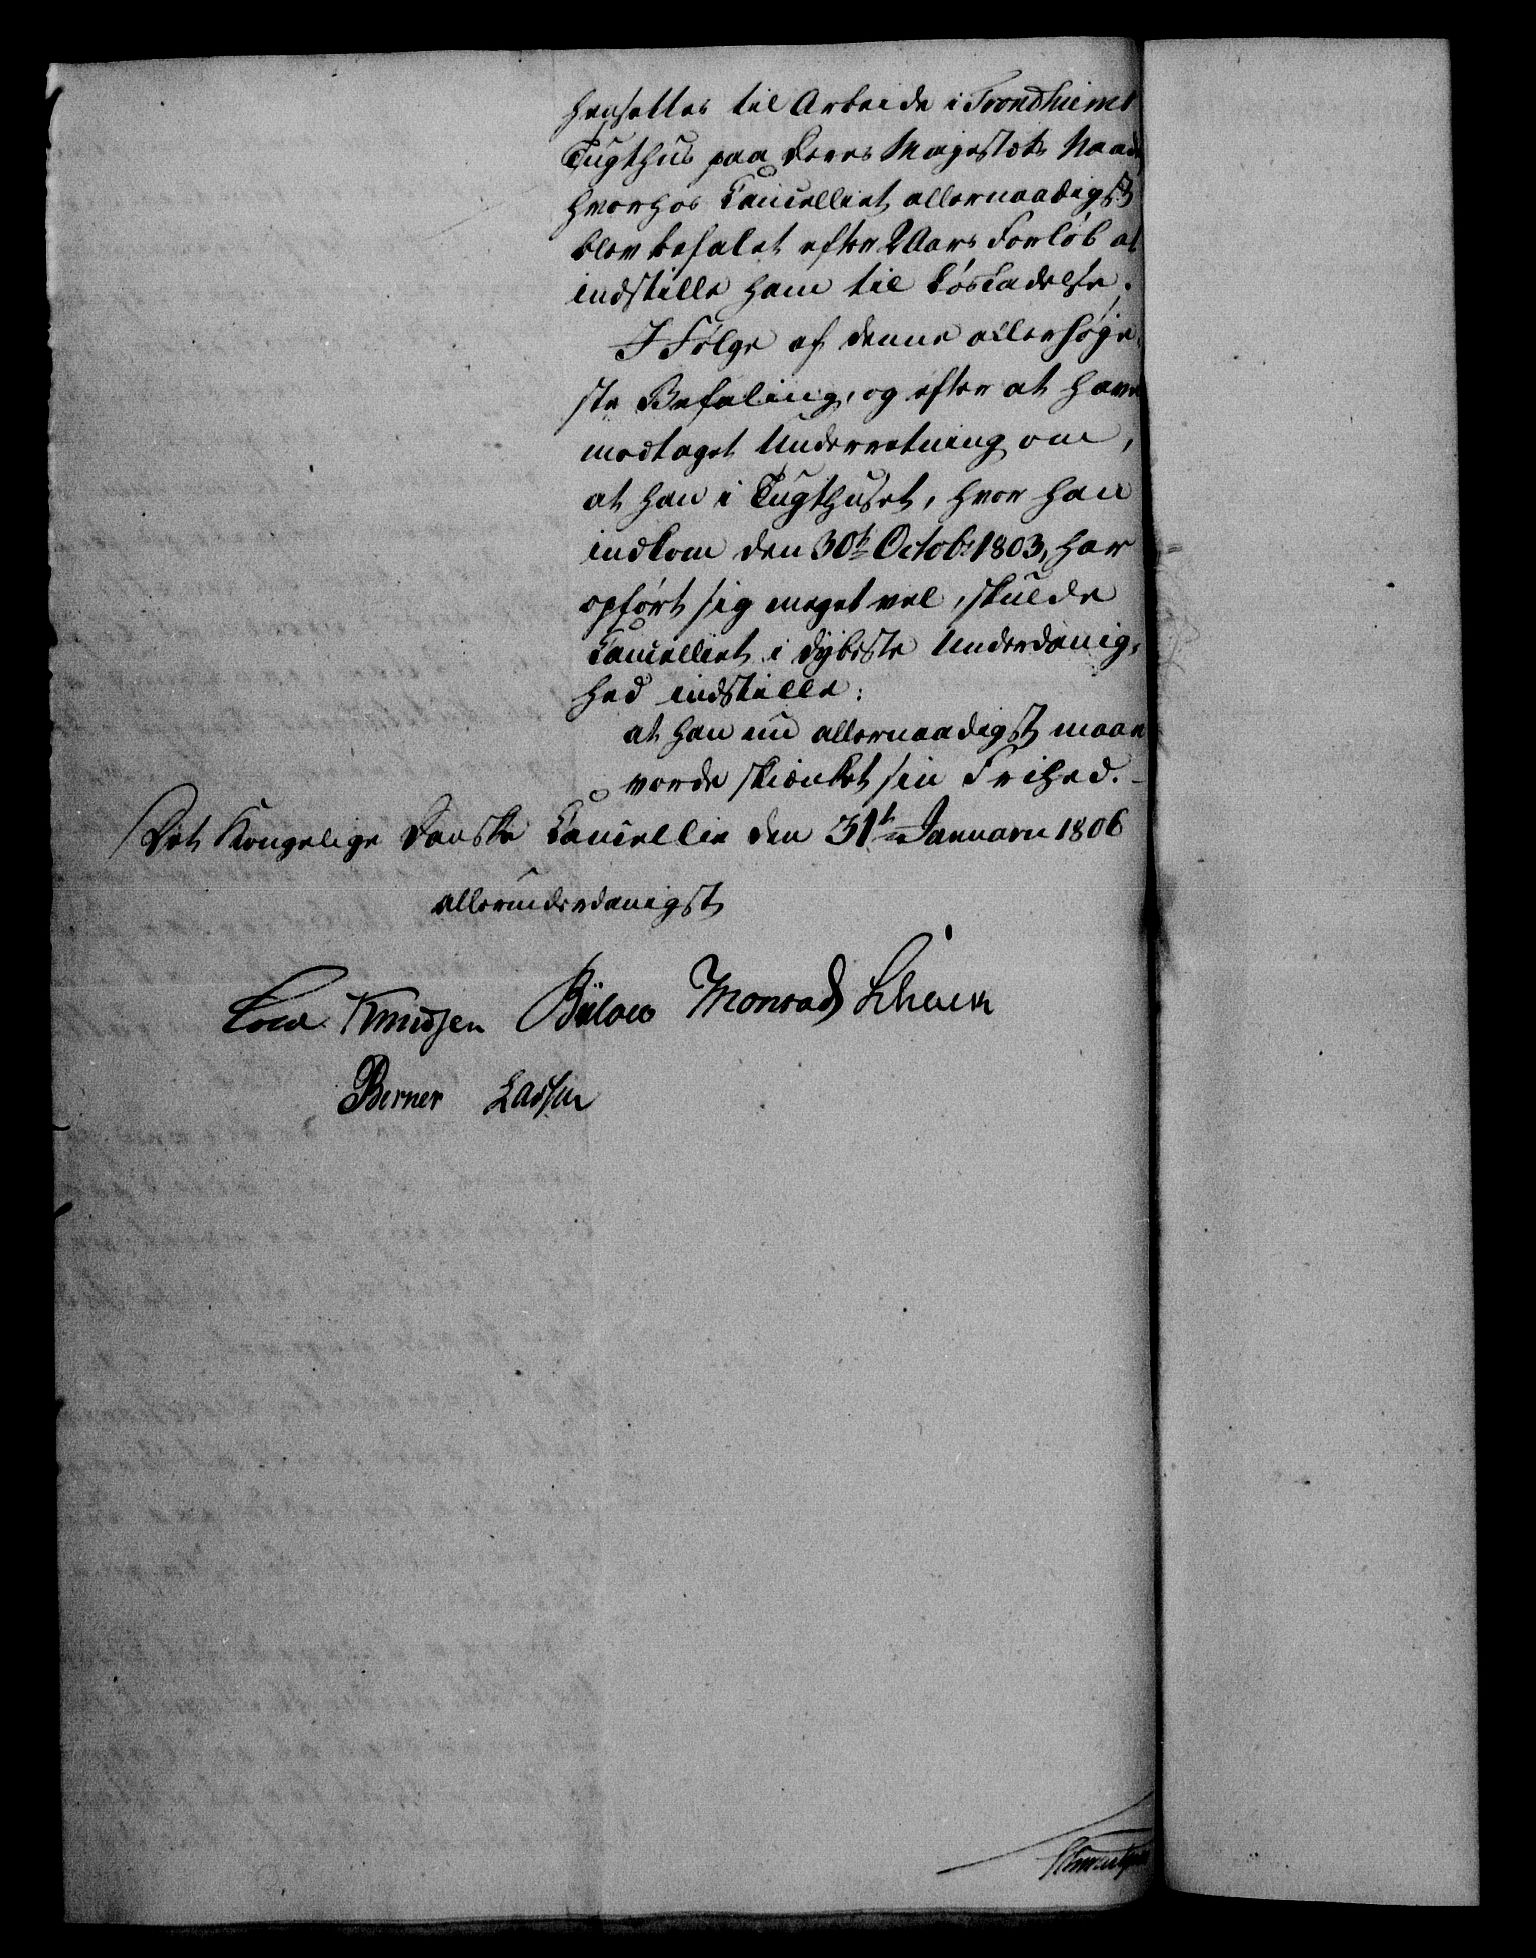 hensættes til Arbeide i Trondhiems
Tugthus paa Deres Majestæts Naade,
hvorhos Cancelliet allernaadigst
blev befalet efter 2 Aars Forløb at
indstille ham til Løsladelse.
I Følge af denne allerhøie-
ste Befaling, og efter at have
modtaget Underretning om,
at han i Tugthuset, hvor han
indkom den 30t Octob: 1803, har
opført sig meget vel, skulde
Cancelliet i dybeste Underdanig-
hed indstille:
at han nu allernaadigst maae
vorde skiænket sin Frihed.-
Det Kongelige Danske Cancellie den 31t Januarii 1806
allerunderdanigst
Knudsen Bülow Monrad
Berner Lassen